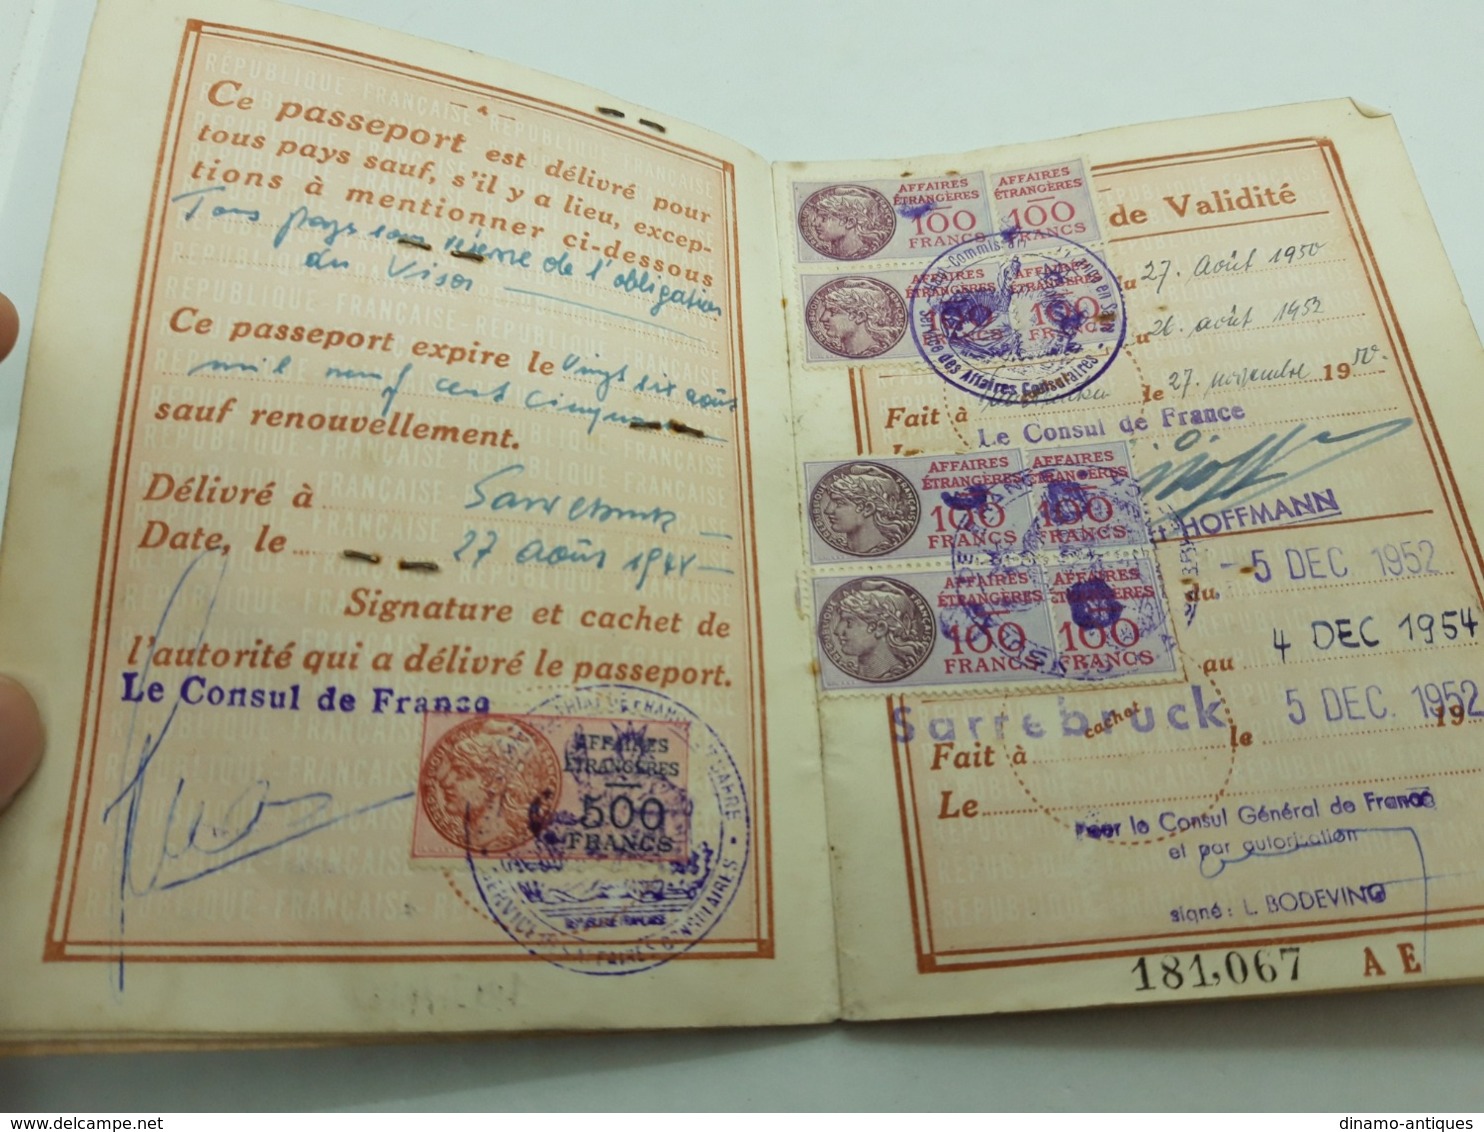 Ce passeport est délivré pour
tous pays sauf, s'il y a lieu, excep-
tions à mentionner ci-dessous
Tous pays sous réserve de l'obligation
du Visa
Ce passeport expire le Vingt six août
mil neuf cent cinquante
sauf renouvellement.
Délivré à Sarrebruck
Date, le 27 août 1948
Signature et cachet de
l'autorité qui a délivré le passeport.
Le Consul de France
AFFAIRES
ÉTRANGÈRES
500
FRANCS
SERVICE DES AFFAIRES CONSULAIRES
RÉPUBLIQUE FRANÇAISE
de Validité
AFFAIRES
ÉTRANGÈRES
100
FRANCS
AFFAIRES
ÉTRANGÈRES
100
FRANCS
AFFAIRES
ÉTRANGÈRES
100
FRANCS
AFFAIRES
ÉTRANGÈRES
100
FRANCS
des Affaires Consulaires
du 27. août 1950
au 26. août 1952
Fait à Sarrebruck le 27. novembre 1950.
Le Consul de France
HOFFMANN
AFFAIRES
ÉTRANGÈRES
100
FRANCS
AFFAIRES
ÉTRANGÈRES
100
FRANCS
AFFAIRES
ÉTRANGÈRES
100
FRANCS
AFFAIRES
ÉTRANGÈRES
100
FRANCS
du - 5 DEC 1952
au 4 DEC 1954
Sarrebruck
Fait à le 5 DEC. 1952 19
cachet
Le
Pour le Consul Général de France
et par autorisation
signé: L. BODEVING
181,067 AE
dinamo-antiques
www.delcampe.net
dinamo-antiques